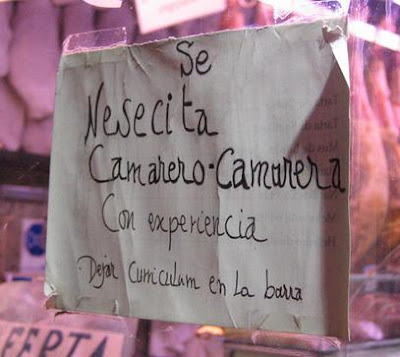 Se
Nesecita
Camarero-Camarera
Con experiencia
Dejar Curriculum en La barra
FERTA